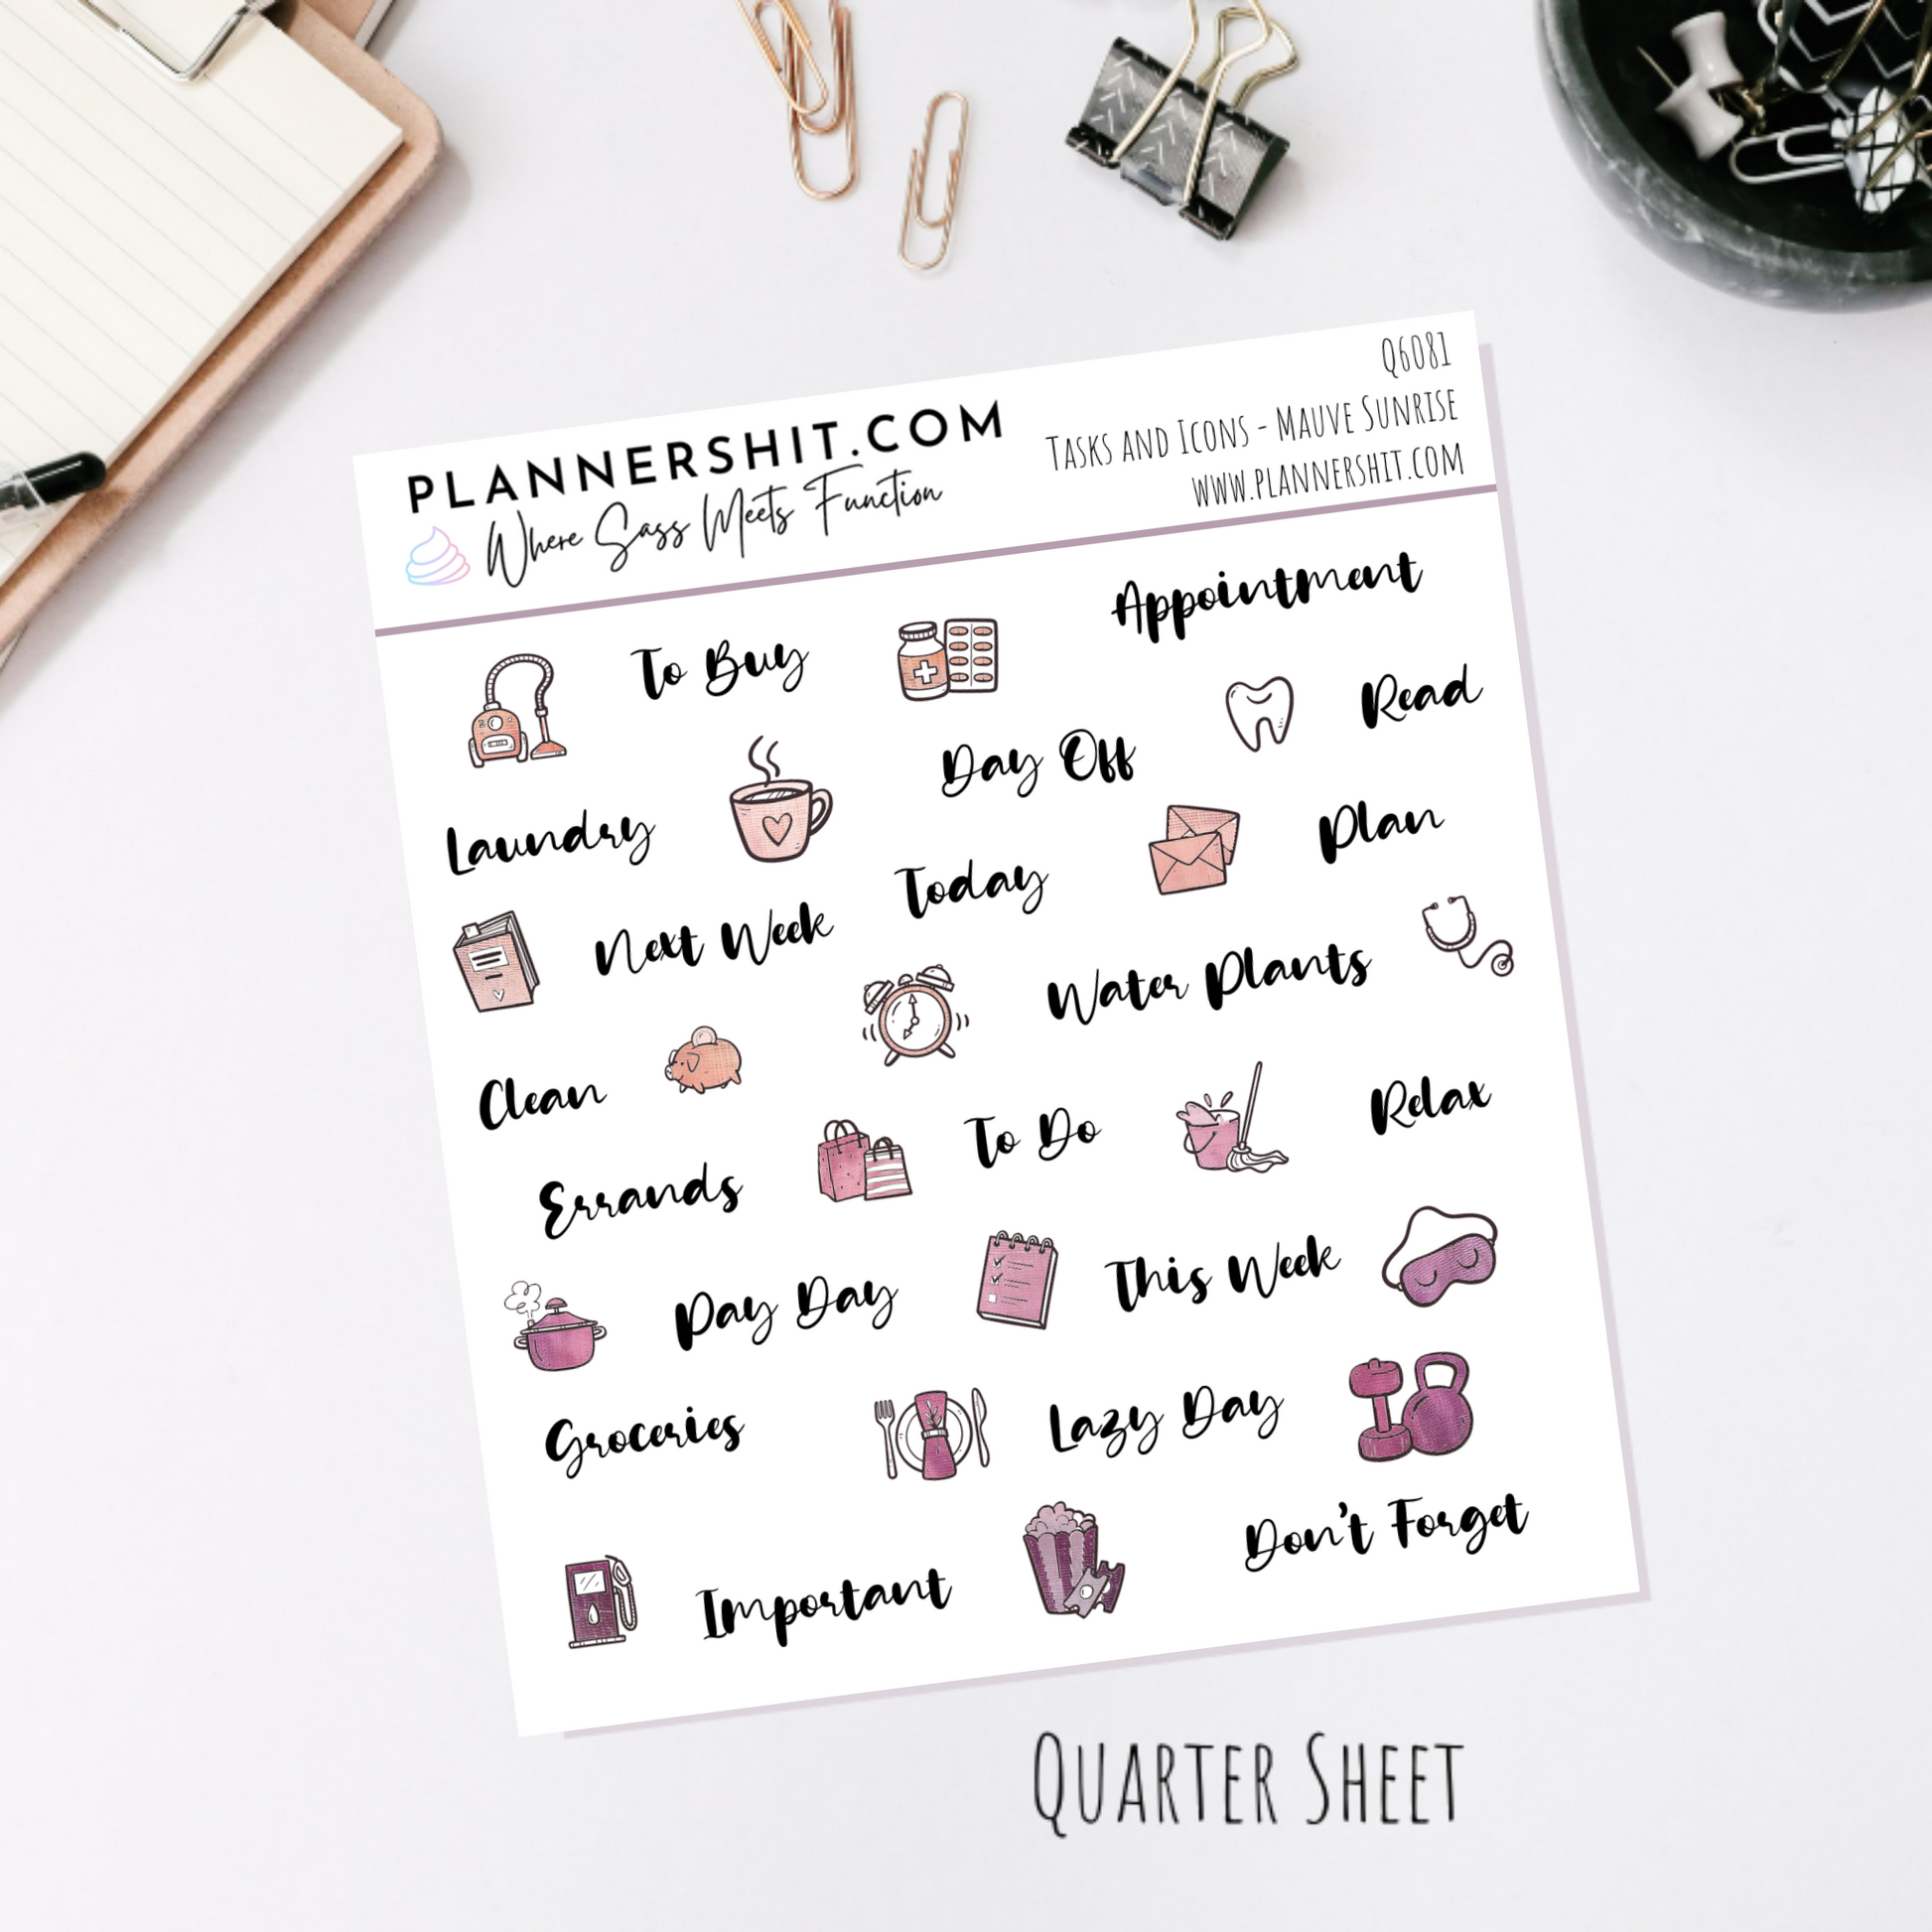 PLANNERSHIT.COM
Where Sass Meets Function
Q6081
Tasks and Icons - Mauve Sunrise
www.plannershit.com
To Buy
Appointment
Read
Day Off
Laundry
Plan
Today
Next Week
Water Plants
Clean
To Do
Relax
Errands
This Week
Pay Day
Lazy Day
Groceries
Don't Forget
Important
Quarter Sheet